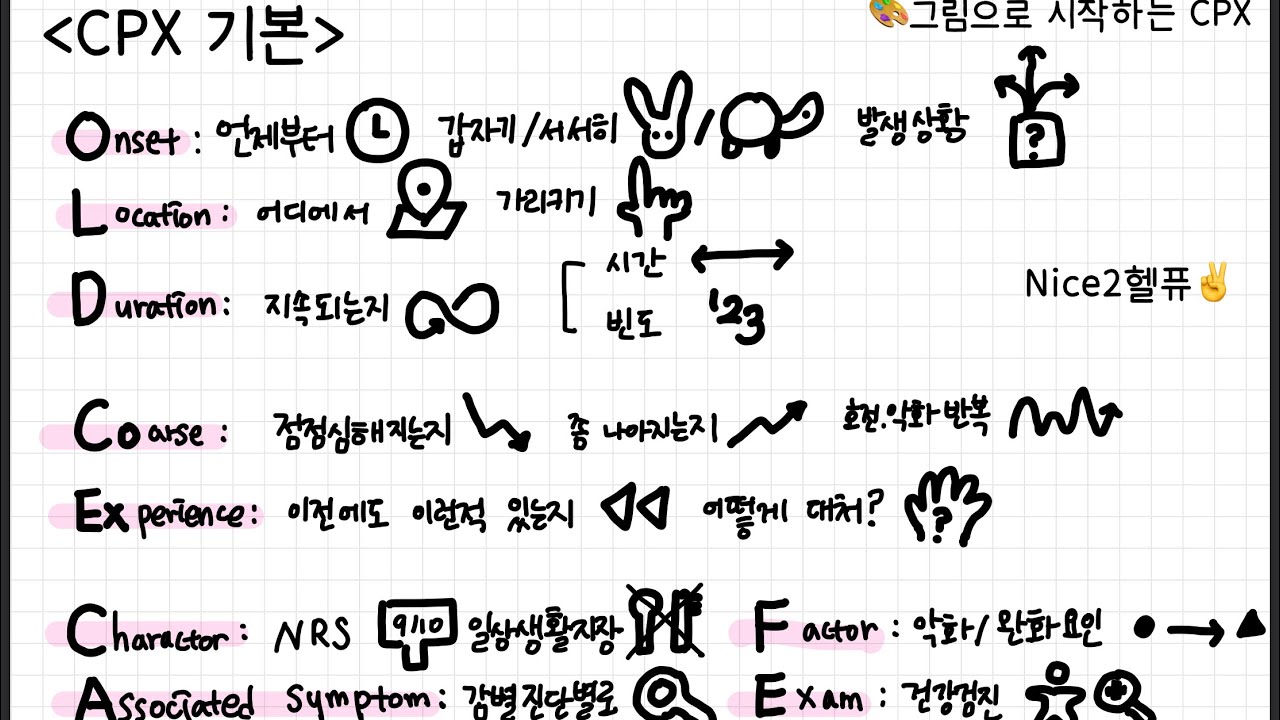 <CPX 기본>
🎨그림으로 시작하는 CPX
Onset : 언제부터 갑자기/서서히 / 발생상황 ?
Location : 어디에서 가리키기
Duration : 지속되는지 시간
빈도 '23
Nice2헬퓨✌️
Coarse : 점점심해지는지 좀 나아지는지 호전.악화 반복
Experience : 이전에도 이런적 있는지 어떻게 대처? ?
Charactor : NRS 9/10 일상생활지장
Factor : 악화/완화요인
Associated Symptom : 감별진단별로
Exam : 건강검진